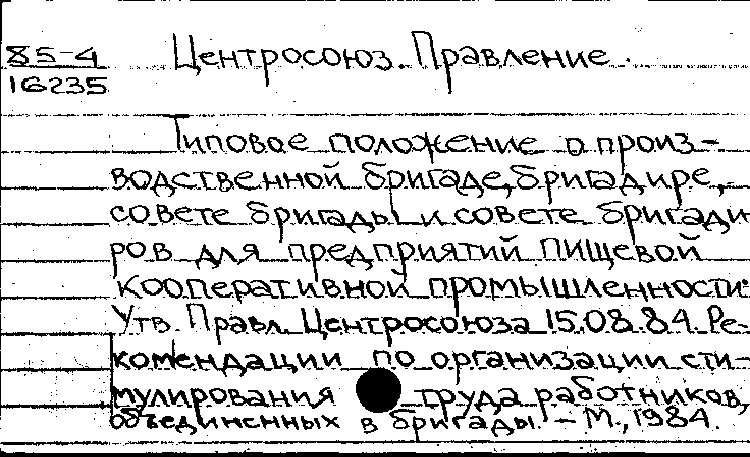 85-4
16235
Центросоюз. Правление.
Типовое положение о произ-
водственной бригаде, бригадире,
совете бригады и совете бригади
ров для предприятий пищевой
кооперативной промышленности:
Утв. Правл. Центросоюза 15.08.84. Ре-
комендации по организации сти-
мулирования труда работников,
объединенных в бригады. - М., 1984.